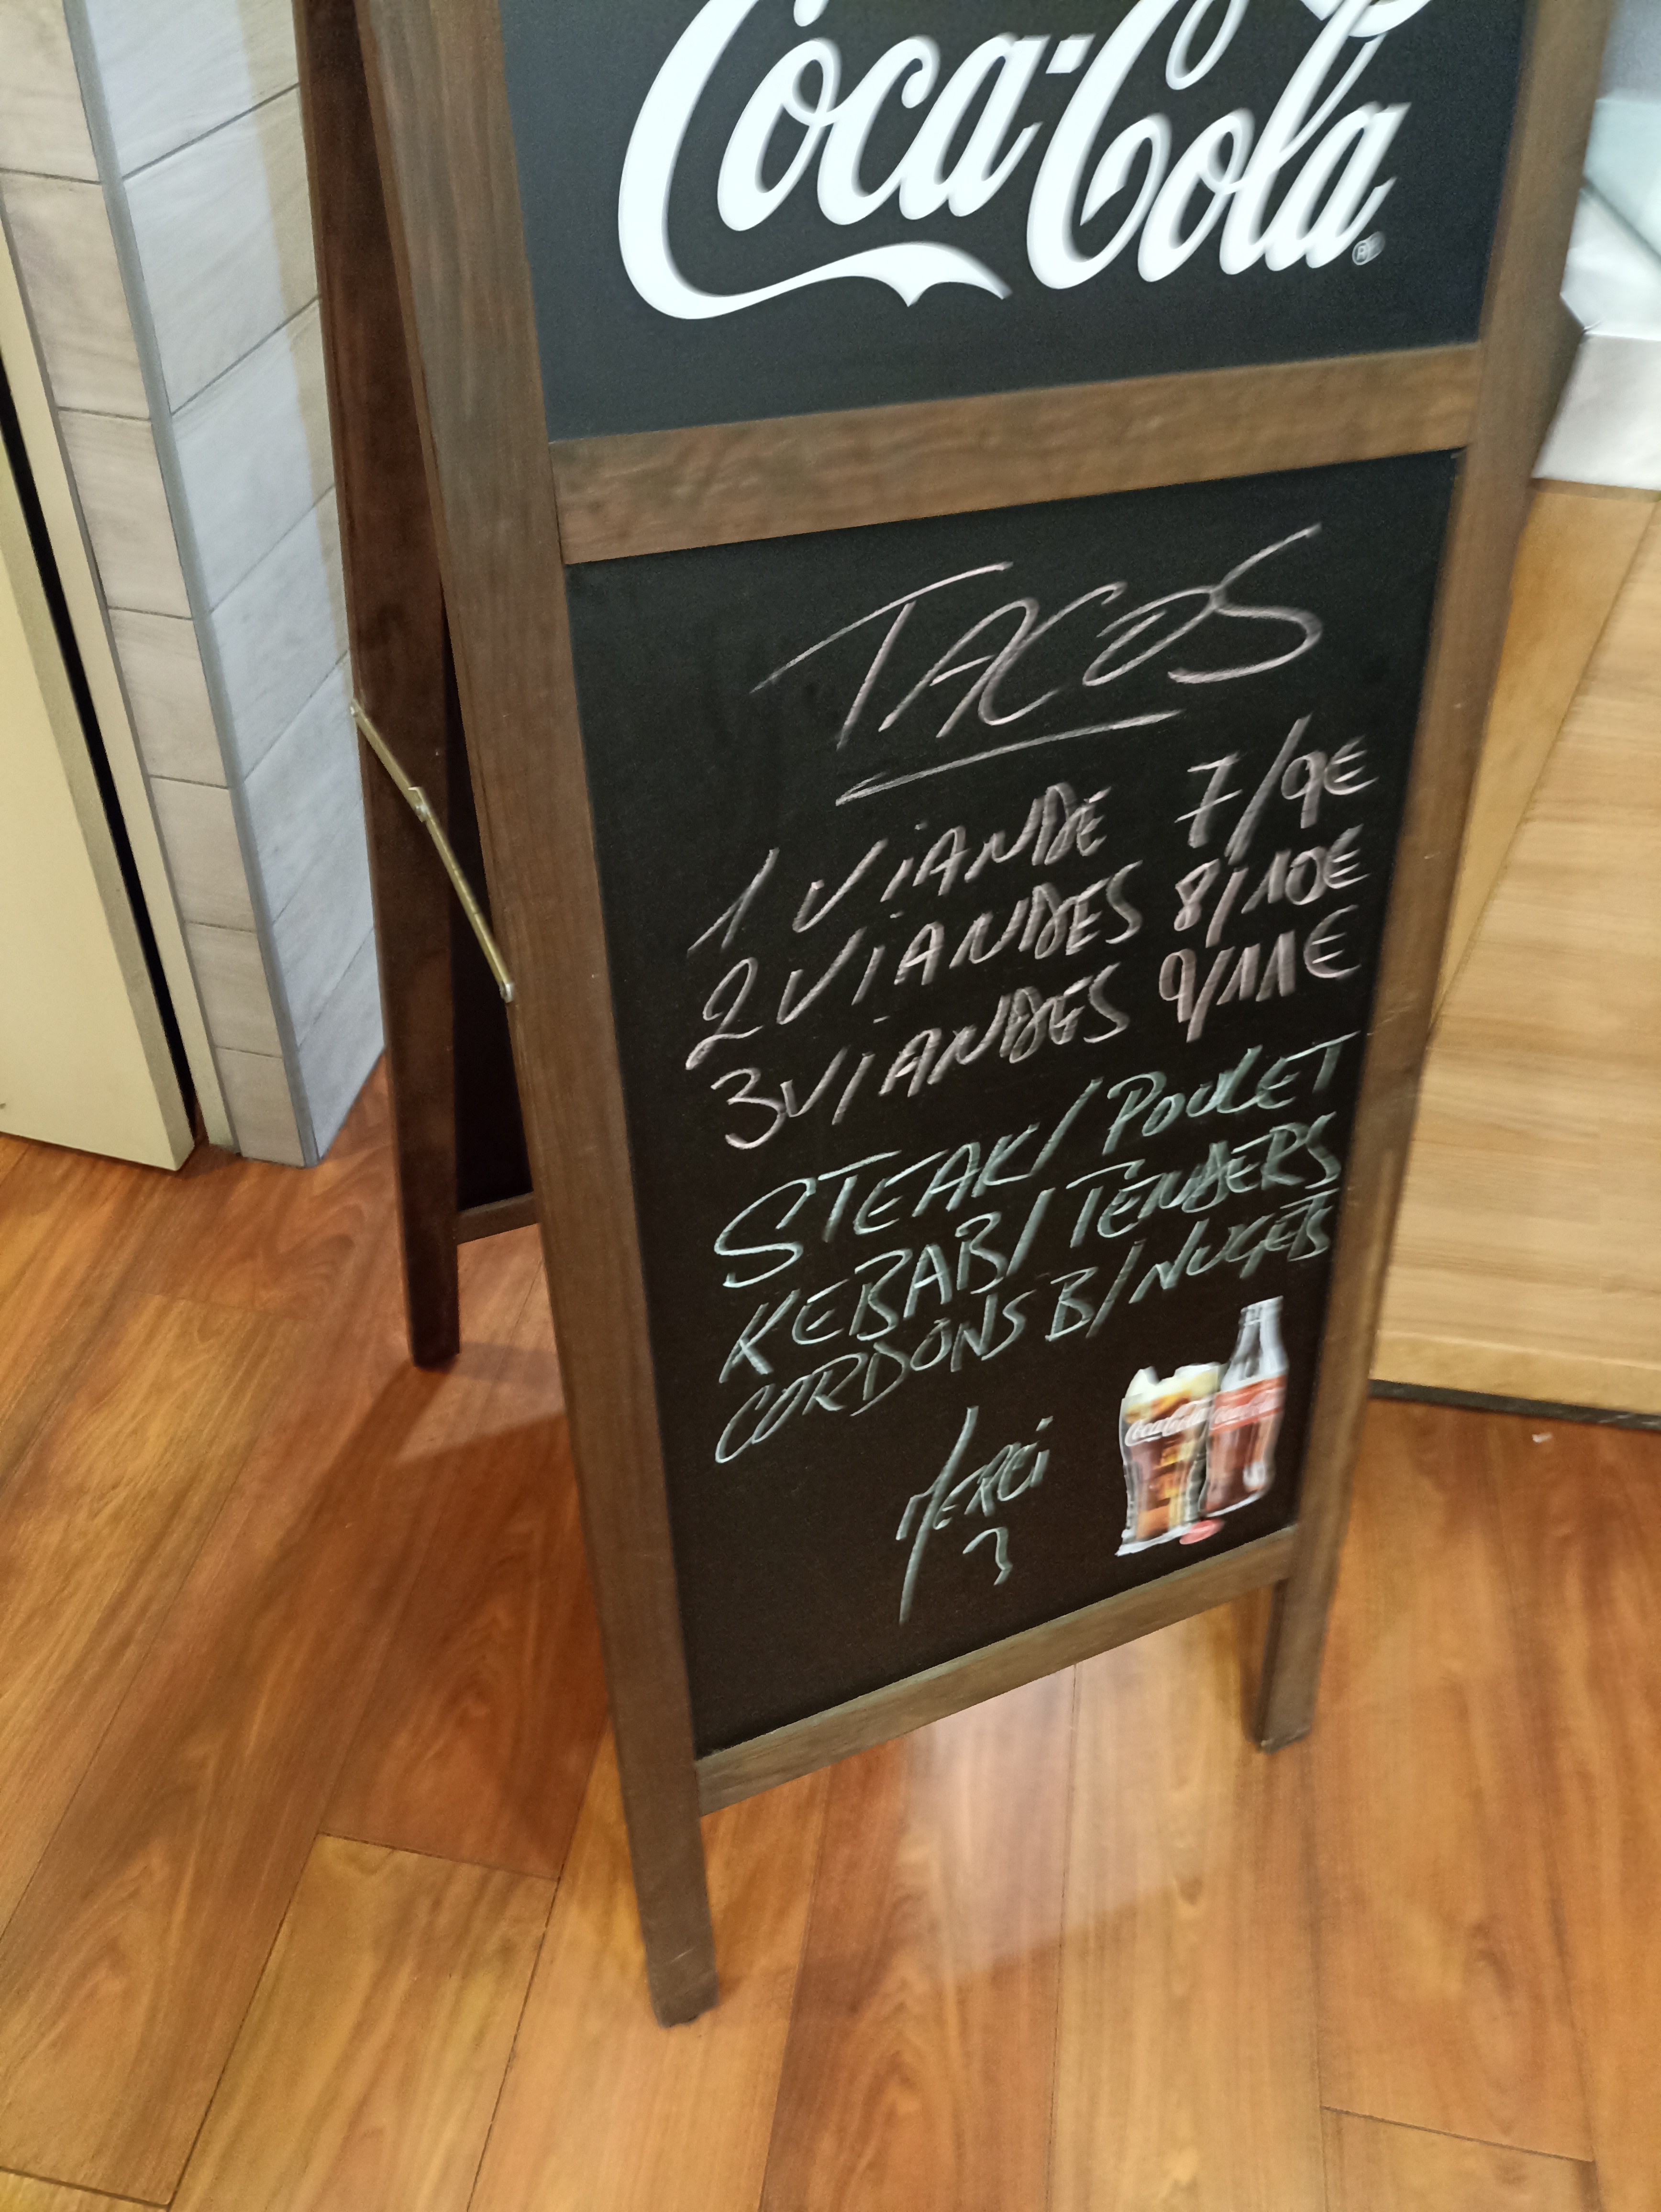 Coca-Cola
TACOS
1 VIANDE 7/9€
2 VIANDES 8/10€
3 VIANDES 9/11€
STEAK/POULET
KEBAB/TENDERS
CORDONS B/NUGETS
MERCI
Coca-Cola Coca-Cola